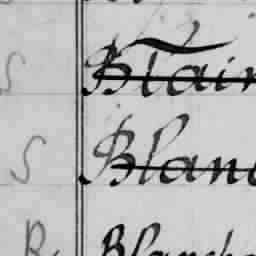 S Blair
S Blanc
R. Blanche